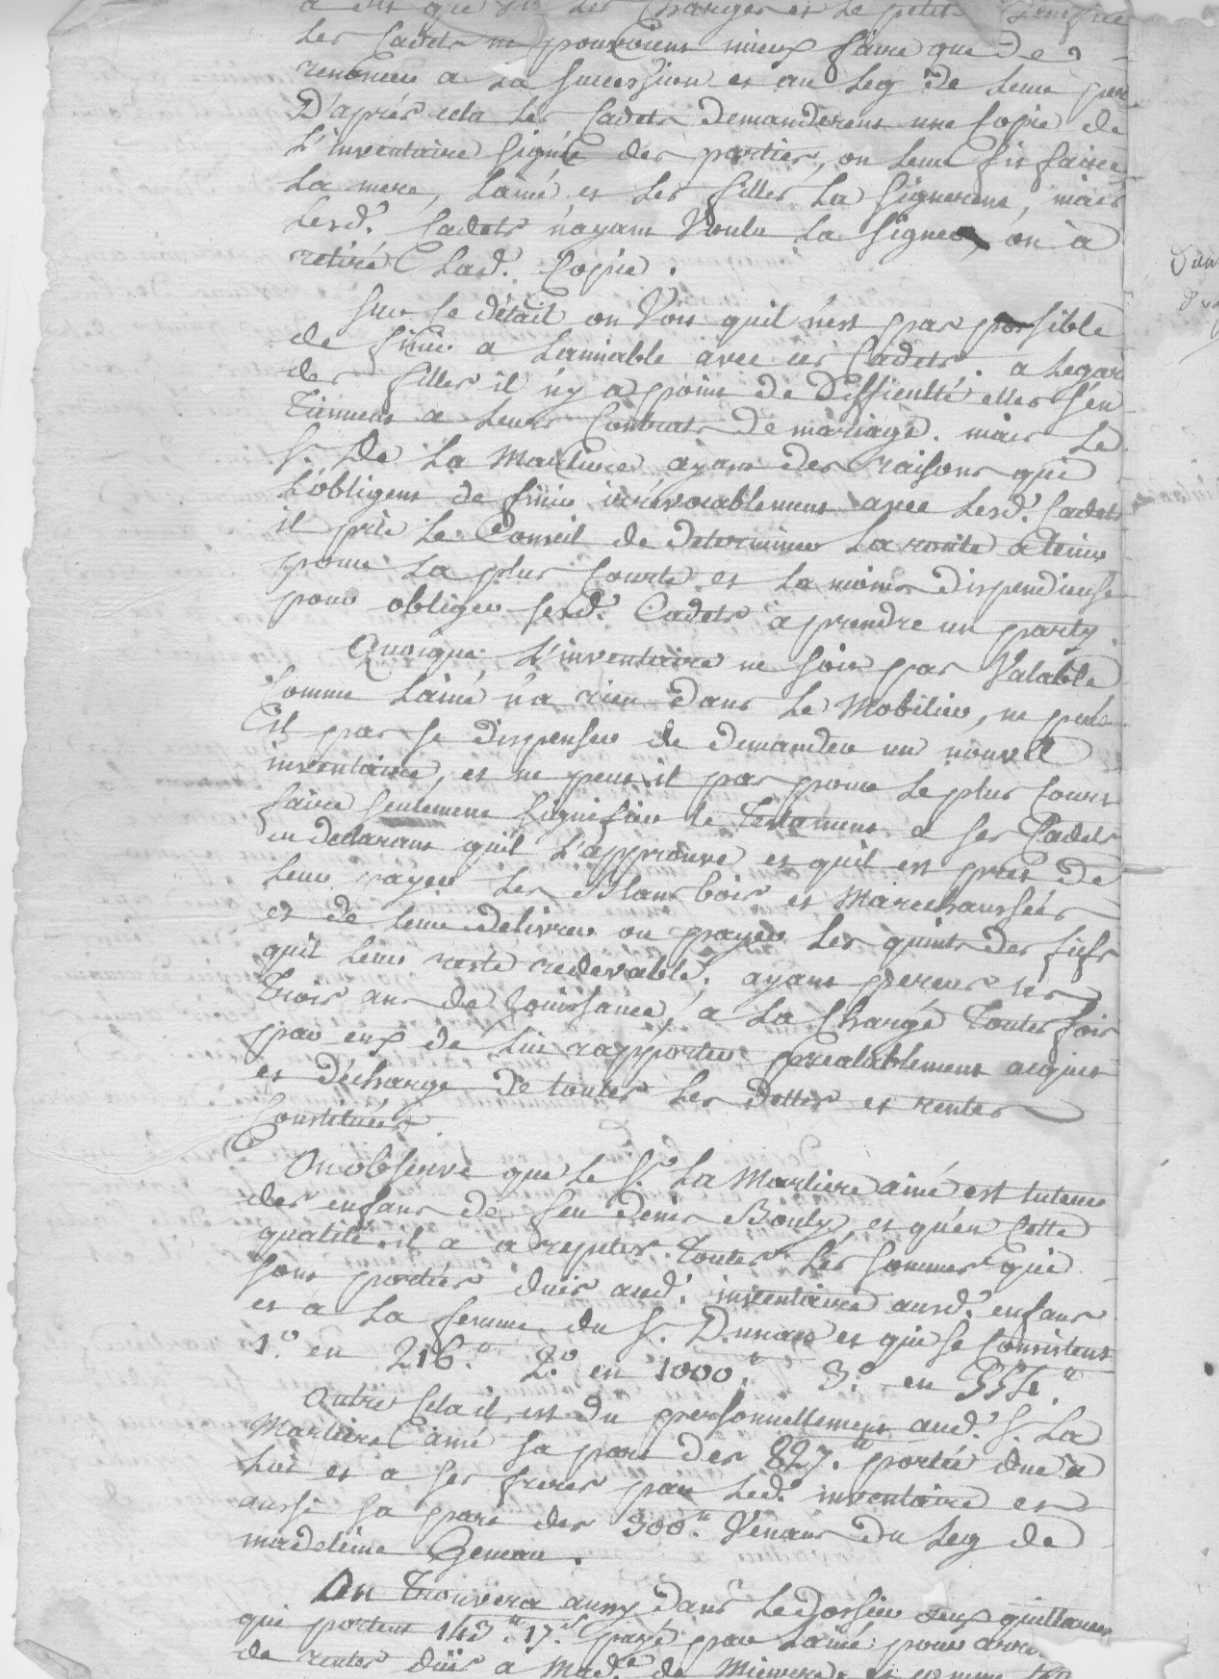 a dit que vu les charges et le petit
les Cadets ne pouvoient mieux faire que de
renoncer a la succession et au leg de leur pere
D'aprés cela les Cadets demanderent une Copie de
L'inventaire signée des parties, on leur fit faire,
la mere, lainé et les filles la signerent, mais
lesd. Cadets n'ayant Voulu la signer, on à
retiré lad. Copie.
sur ce détail on Voit quil n'est pas possible
de finir a l'amiable avec ces Cadets. a legard
des filles il n'y a point de difficulté elles s'en
tiennent a leurs Contrats de mariage. mais le
S. De la Marliere ayant des raisons qui
L'obligent de finir irrévocablement avec lesd. Cadets
il prie le Conseil de determiner la route a tenir
pour la plus courte et la moins dispendieuse
pour obliger sesd. Cadets a prendre un party
Quoique L'inventaire ne soit pas Valable
comme lainé n'a rien dans le Mobilier, ne peut
il pas se dispenser de demander un nouvel
inventaire, et ne peut il pas pour le plus court
faire seulement signifier le Testament a ses Cadets
en declarant quil l'approuve et quil est prest de
leur payer les Blans bois et Marechaussées
et de leur delivrer ou payer les quints des fiefs
quil leur reste redevable, ayant perçus les
Trois ans de Jouissance, a la charge Toutes fois
par eux de lui rapporter prealablement acquit
et décharge de toutes les dettes et rentes
Constituées.
On observe que le S. La Marliere ainé est tuteur
des enfans de feu denis Bouly et qu'en Cette
qualité il a a repeter Toutes les sommes qui
sont portées dues aud. inventaire ausd. enfans
et a la femme du S. et qui se Consistent
1.° en 216.# 2.° en 1000.# 3.° en
Outre Cela il est du personnellement aud. S. La
Marliere ainé sa part des 827.# portée due a
lui et a ses freres par led. inventaire et
aussi sa part des 300.# Venans du leg de
madeleine
On Trouvera aussy dans le dossier deux quittances
qui portent 143.# 17.s payé par lainé pour
de rentes dües a Mad.e de et comme